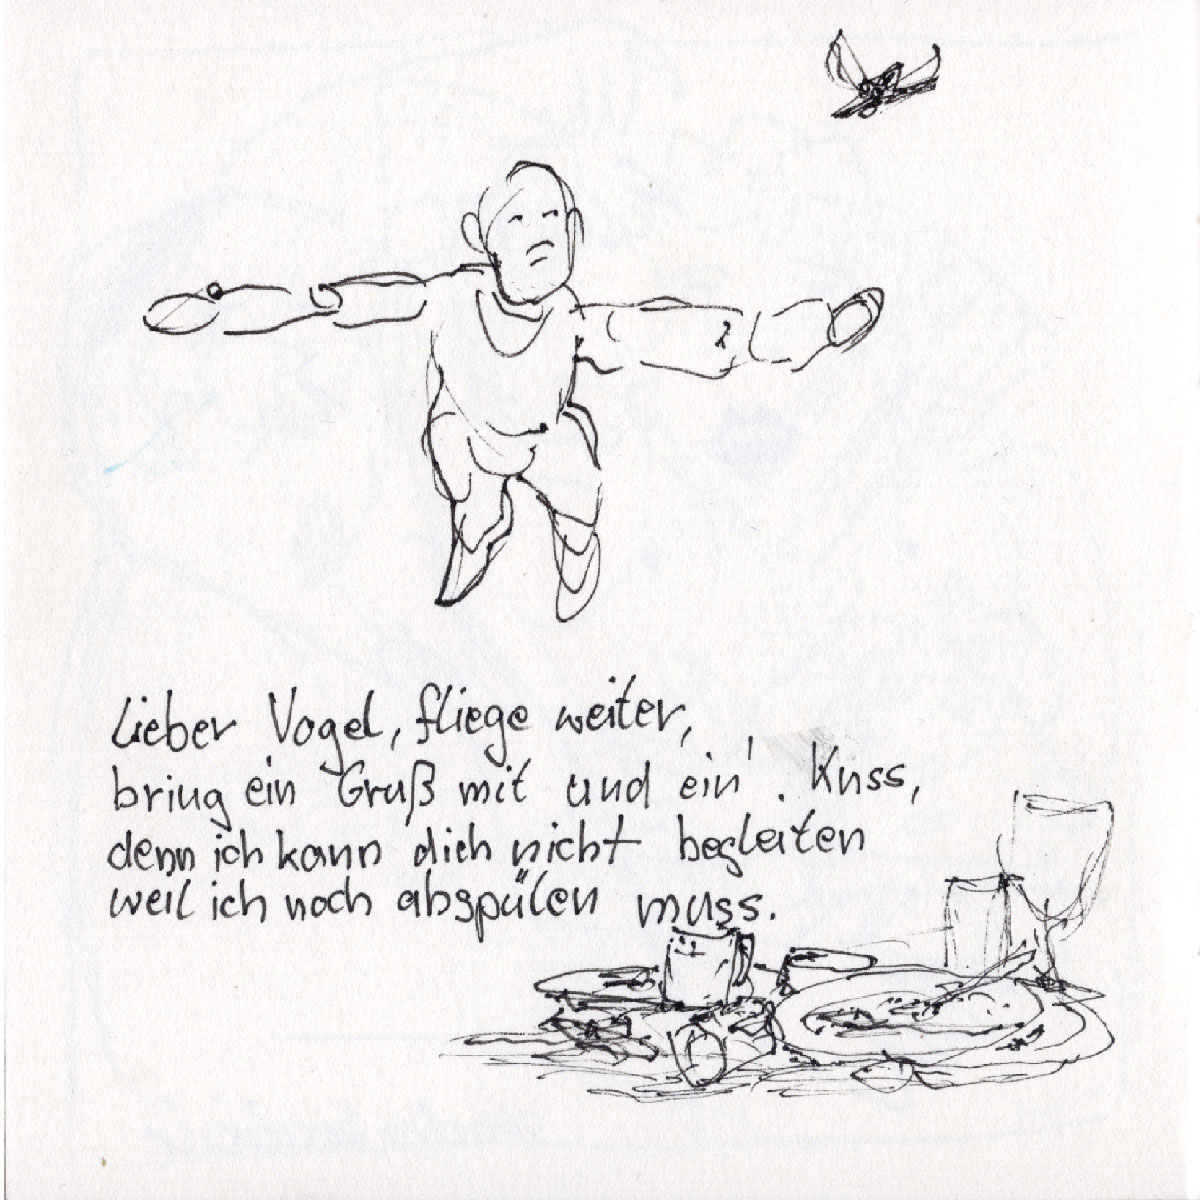 Lieber Vogel, fliege weiter,
bring ein Gruß mit und ein'. Kuss,
denn ich kann dich nicht begleiten
weil ich noch abspülen muss.